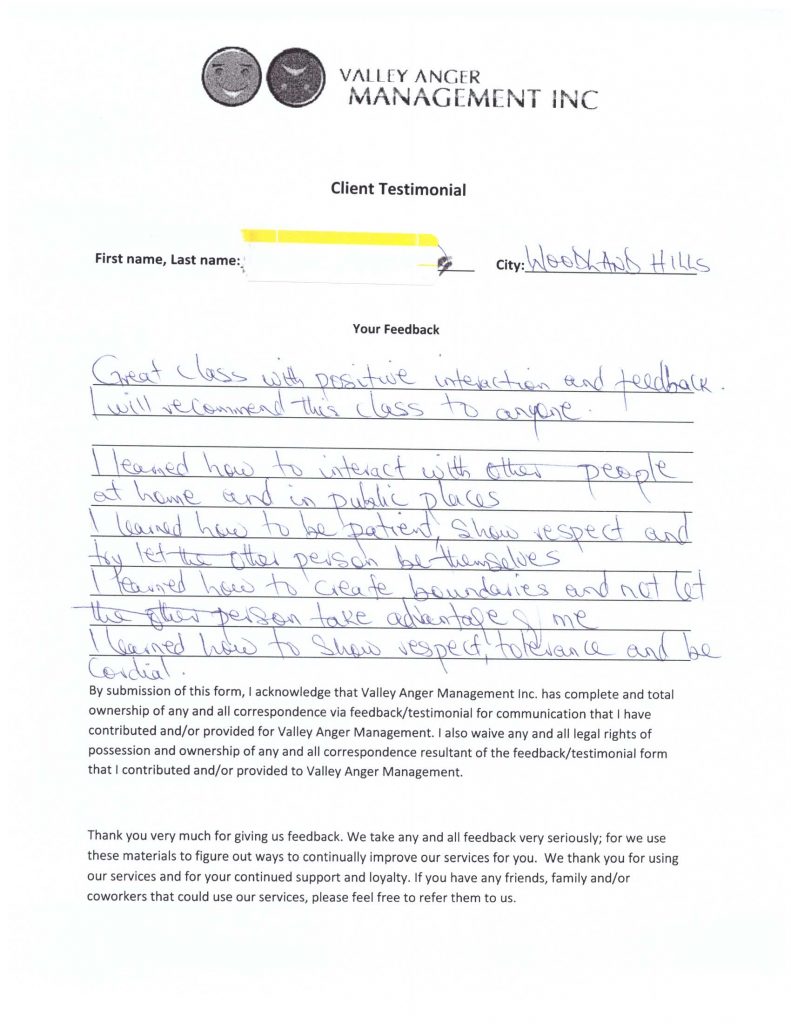 VALLEY ANGER
MANAGEMENT INC
Client Testimonial
First name, Last name: City: WOODLAND HILLS
Your Feedback
Great class with positive interaction and feedback.
I will recommend this class to anyone.
I learned how to interact with other people
at home and in public places
I learned how to be patient, show respect and
try let the other person be themselves
I learned how to create boundaries and not let
the other person take advantage of me
I learned how to show respect, tolerance and be
Cordial.
By submission of this form, I acknowledge that Valley Anger Management Inc. has complete and total
ownership of any and all correspondence via feedback/testimonial for communication that I have
contributed and/or provided for Valley Anger Management. I also waive any and all legal rights of
possession and ownership of any and all correspondence resultant of the feedback/testimonial form
that I contributed and/or provided to Valley Anger Management.
Thank you very much for giving us feedback. We take any and all feedback very seriously; for we use
these materials to figure out ways to continually improve our services for you. We thank you for using
our services and for your continued support and loyalty. If you have any friends, family and/or
coworkers that could use our services, please feel free to refer them to us.